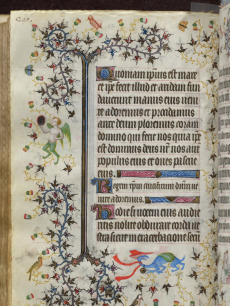 Quoniam ipsius est mare
et ipse fecit illud et aridam fun
daverunt manus eius venite
adoremus et procidamus
ante deum ploremus coram
domino qui fecit nos quia ipse
est dominus deus noster nos autem
populus eius et oves pascue
eius.
Regem cui omnia vivunt venite
adoremus.
Hodie si vocem eius audie
ritis nolite obdurare corda ves
tra sicut in exacerbatione secu